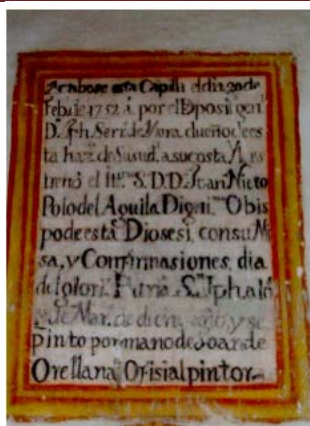 Acabose esta Capilla el dia 20 de
Feb. de 1752 a. por el Deposit. gen.
D. Jph. Serr. de Mora dueño de es
ta haz. de Susud. a su costa Y es
trenó el Ill. S. D. D. Joan Nieto
Polo del Aguila Dign. Obis
po de esta Diosesi, con su Mi
sa, y Confirmasiones, dia
del glori. Patria. S. Jphal
de Mar. de año, y se
pinto por mano de Joan de
Orellana Ofisial pintor